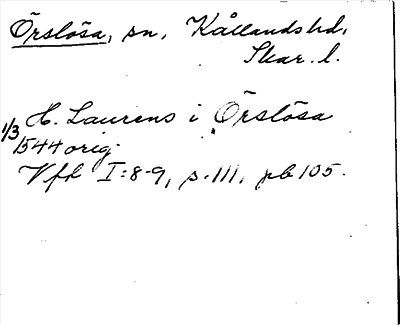 Örslösa, sn, Kållands hd,
Skar. l.
H. Laurens i Örslösa
1/3 1544 orig.
Vfl I:8-9, s. 111, pb 105.